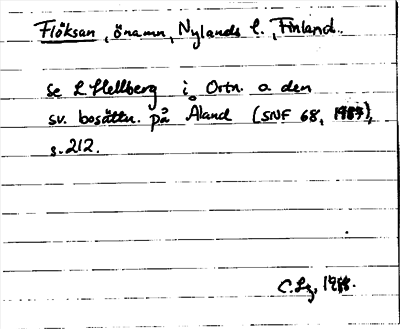 Flöksan, önamn, Nylands l., Finland.
Se L Hellberg i Ortn. o. den
sv. bosättn. på Åland (SNF 68, 1987),
s. 212.
C. Lz, 1988.